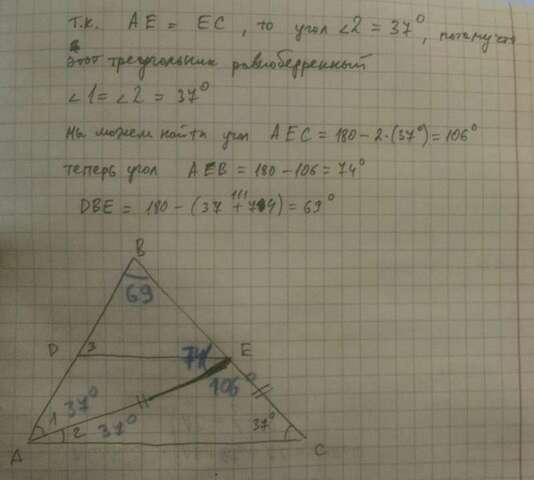 т.к. AE = EC, то угол ∠2 = 37°, потому что
этот треугольник равнобедренный
∠1 = ∠2 = 37°
Мы можем найти угол AEC = 180 - 2·(37°) = 106°
теперь угол AEB = 180 - 106 = 74°
111
DBE = 180 - (37 + 74) = 69°
B
69
D 3 74 E
106°
1 37°
2 37° 37°
A C